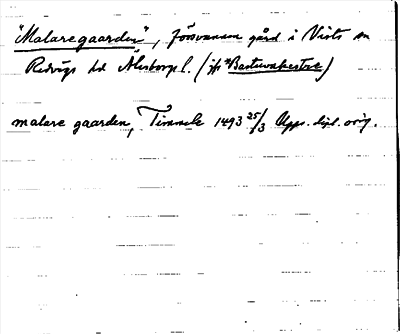 "Malaregaarden", försvunnen gård i Vists sn
Redvägs hd Älvsborgs l. (jfr *Bastuvabestas)
malare gaarden, Timmele 1493 25/3 Upps. dipl. orig.